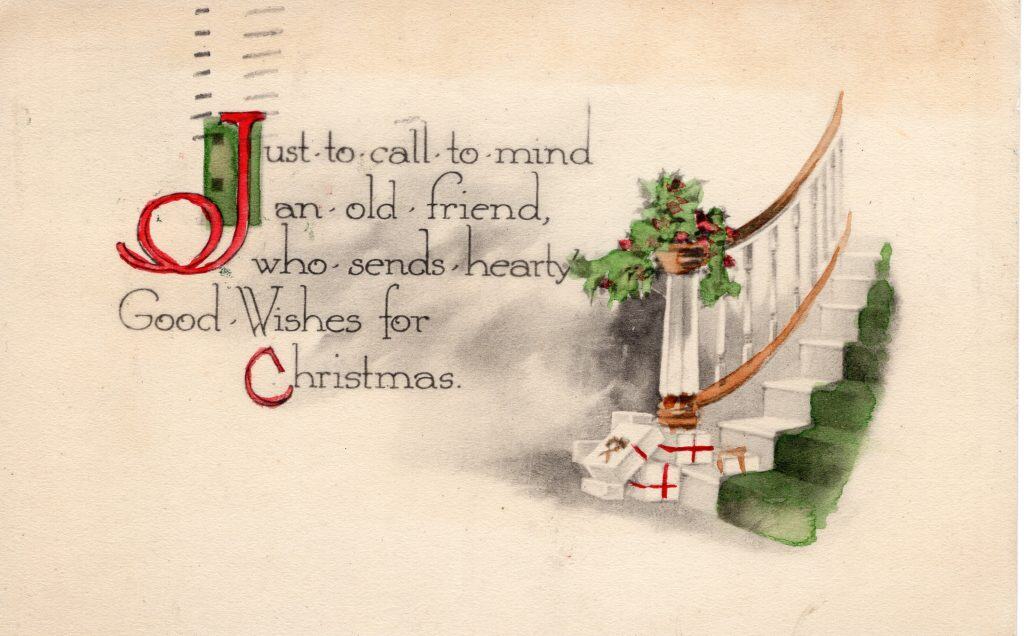 Just·to·call·to·mind
an·old·friend,
who·sends·hearty
Good·Wishes for
Christmas.